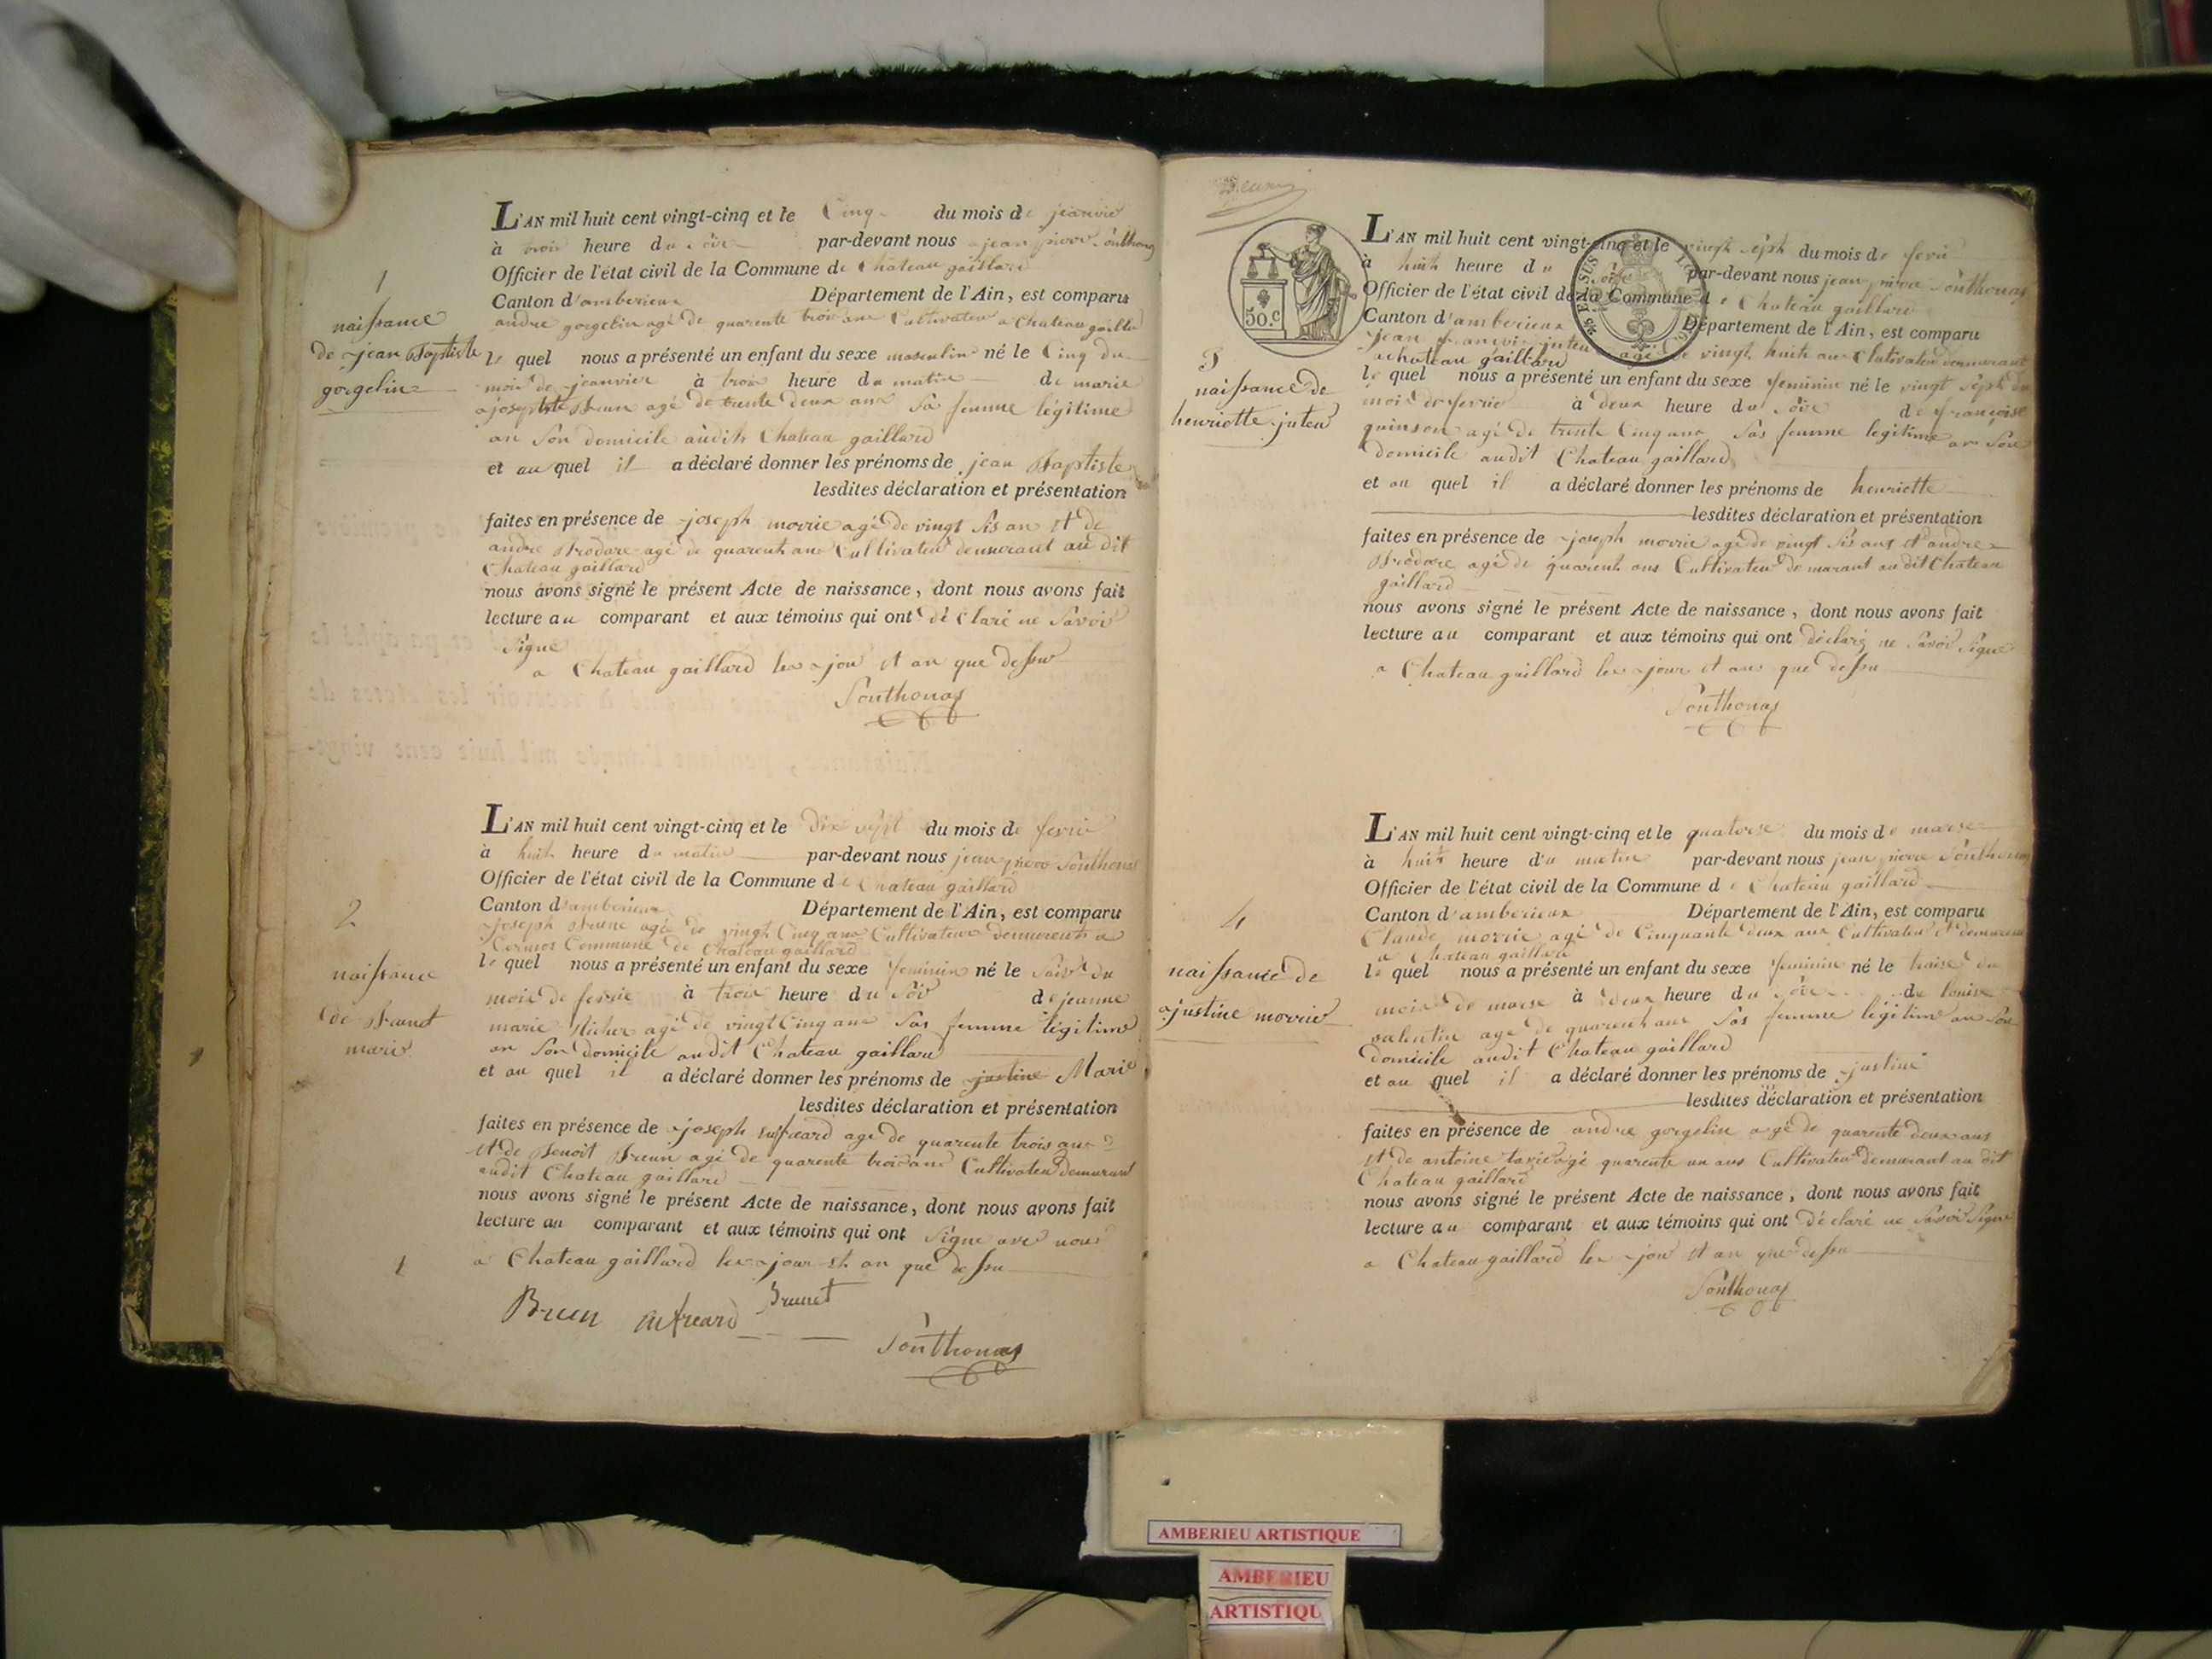 1
naissance
de jean Baptiste
gorgelin
L'AN mil huit cent vingt-cinq et le Cinq du mois de jeanvié
à trois heure du soir par-devant nous jean pierre Sonthonas
Officier de l'état civil de la Commune de Chateau gaillard
Canton d'amberieux Département de l'Ain, est comparu
andre gorgelin agé de quarente trois ans Cultivateu a Chateau gailla
le quel nous a présenté un enfant du sexe masculin né le Cinq du
mois de jeanvier à trois heure du matin de marie
josephte Brun agé de trente deux ans Sa femme légitime
an Son domicile audit Chateau gaillard
et au quel il a déclaré donner les prénoms de jean Baptiste
lesdites déclaration et présentation
faites en présence de joseph morrie agé de vingt Sis an et de
andre Brodare agé de quarent ans Cultivateu demurant au dit
Chateau gaillard
nous avons signé le présent Acte de naissance, dont nous avons fait
lecture au comparant et aux témoins qui ont dé Claré ne Savoir
Signe
a Chateau gaillard les jour et an que dessu
Sonthonas
2
naissance
de Brunet
marie
L'AN mil huit cent vingt-cinq et le dix sept du mois de fevrie
à huit heure du matin par-devant nous jean pierre Sonthonas
Officier de l'état civil de la Commune de Chateau gaillard
Canton d'amberieux Département de l'Ain, est comparu
joseph Brune agé de vingt Cinq ans Cultivateur demurent a
Cormos Commune de Chateau gaillard
le quel nous a présenté un enfant du sexe feminin né le du
mois de fevrie à trois heure du Soir de jeanne
marie agé de vingt Cinq ans Sas femme légitime
an Son domicile audit Chateau gaillard
et au quel il a déclaré donner les prénoms de justine Marie
lesdites déclaration et présentation
faites en présence de joseph agé de quarente trois ans
et de Benoit Brun agé de quarente trois ans Cultivateu demurant
audit Chateau gaillard
nous avons signé le présent Acte de naissance, dont nous avons fait
lecture au comparant et aux témoins qui ont Signe avec nous
a Chateau gaillard les jour et an que dessu
1
Brun Brunet
Sonthonas
50.C
3
naissance de
henriette juteu
L'AN mil huit cent vingt-cinq et le vingt sept du mois de fevri
à huit heure du soir par-devant nous jean pierre Sonthonas
Officier de l'état civil de la Commune de Chateau gaillard
Canton d'amberieux Département de l'Ain, est comparu
jean juteu agé de vingt huit ans Cultivateu demurant
a chateau gaillard
le quel nous a présenté un enfant du sexe feminin né le vingt sept du
mois de fevrie à deux heure du soir de françoise
quinson agé de trente Cinq ans Sas femme legitime an Son
domicile audit Chateau gaillard
et au quel il a déclaré donner les prénoms de henriette
lesdites déclaration et présentation
faites en présence de joseph morrie agé de vingt Sis ans et andre
Brodare agé de quarent ans Cultivateu demurant au dit Chateau
gaillard
nous avons signé le présent Acte de naissance, dont nous avons fait
lecture au comparant et aux témoins qui ont déclaré ne Savoir Signe
a Chateau gaillard les jour et ans que dessu
Sonthonas
4
naissance de
justine morrie
L'AN mil huit cent vingt-cinq et le quatorse du mois de marse
à huit heure du matin par-devant nous jean pierre Sonthonas
Officier de l'état civil de la Commune de Chateau gaillard
Canton d'amberieux Département de l'Ain, est comparu
Claude morrie agé de Cinquante deux ans Cultivateu et demurent
a Chateau gaillard
le quel nous a présenté un enfant du sexe feminin né le traise du
mois de marse à deux heure du soir de louise
valentin agé de quarent ans Sas femme légitime an Son
domicile audit Chateau gaillard
et au quel il a déclaré donner les prénoms de justine
lesdites déclaration et présentation
faites en présence de andre gorgelin agé de quarente deux ans
et de antoine agé quarente un ans Cultivateu demurant au dit
Chateau gaillard
nous avons signé le présent Acte de naissance, dont nous avons fait
lecture au comparant et aux témoins qui ont dé claré ne Savoir Signe
a Chateau gaillard les jour et an que dessu
Sonthonas
AMBERIEU ARTISTIQUE
AMBERIEU
ARTISTIQU